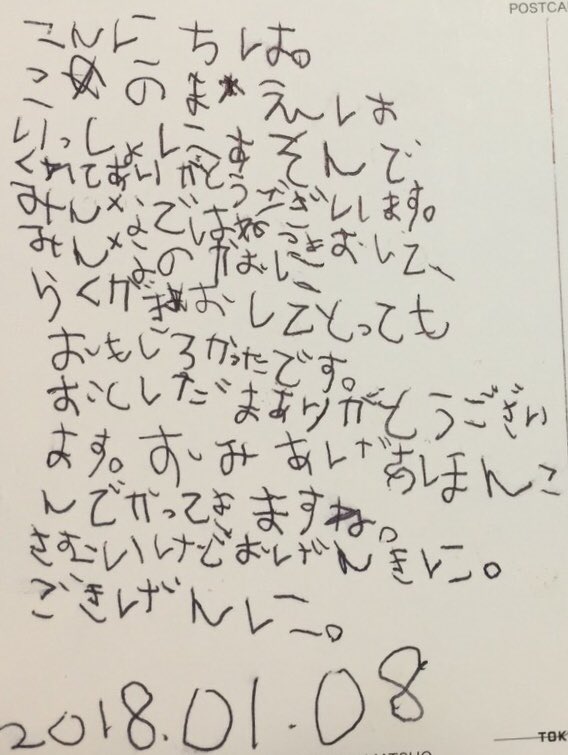 POSTCA
こんにちは。
このまえは
いっしょにあそんで
くれてありがとうございます。
みんなではねつきおして、
みんなのかおに
らくがきおしてとっても
おもしろかったです。
おとしだまありがとうござい
ます。おみあげわほんこ
んでかってきますね。
さむいけどおげんきに。
ごきげんに。
2018.01.08
TOK